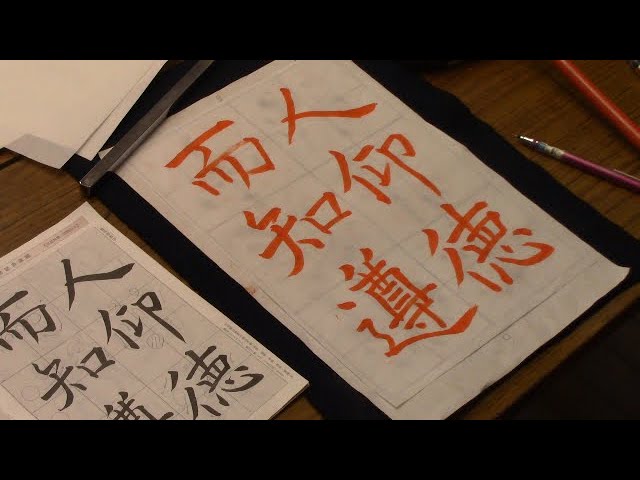 人仰德
而知遵
人仰德
而知遵